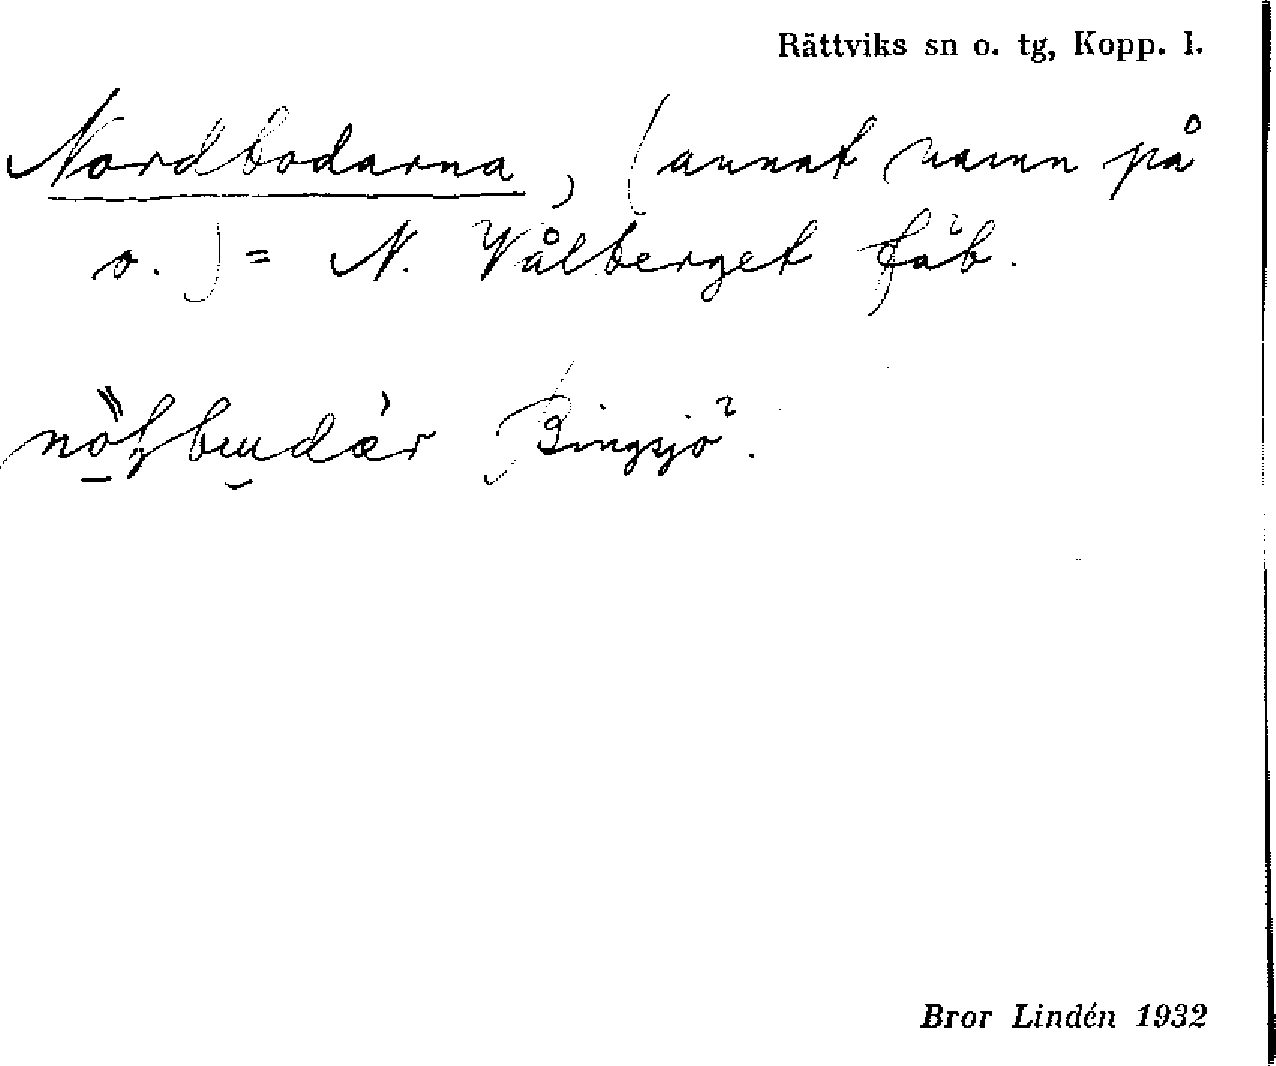 Rättviks sn o. tg, Kopp. l.
Nordbodarna, (annat namn på
o.) = N. Vålberget fäb.
Bingsjö.
Bror Lindén 1932